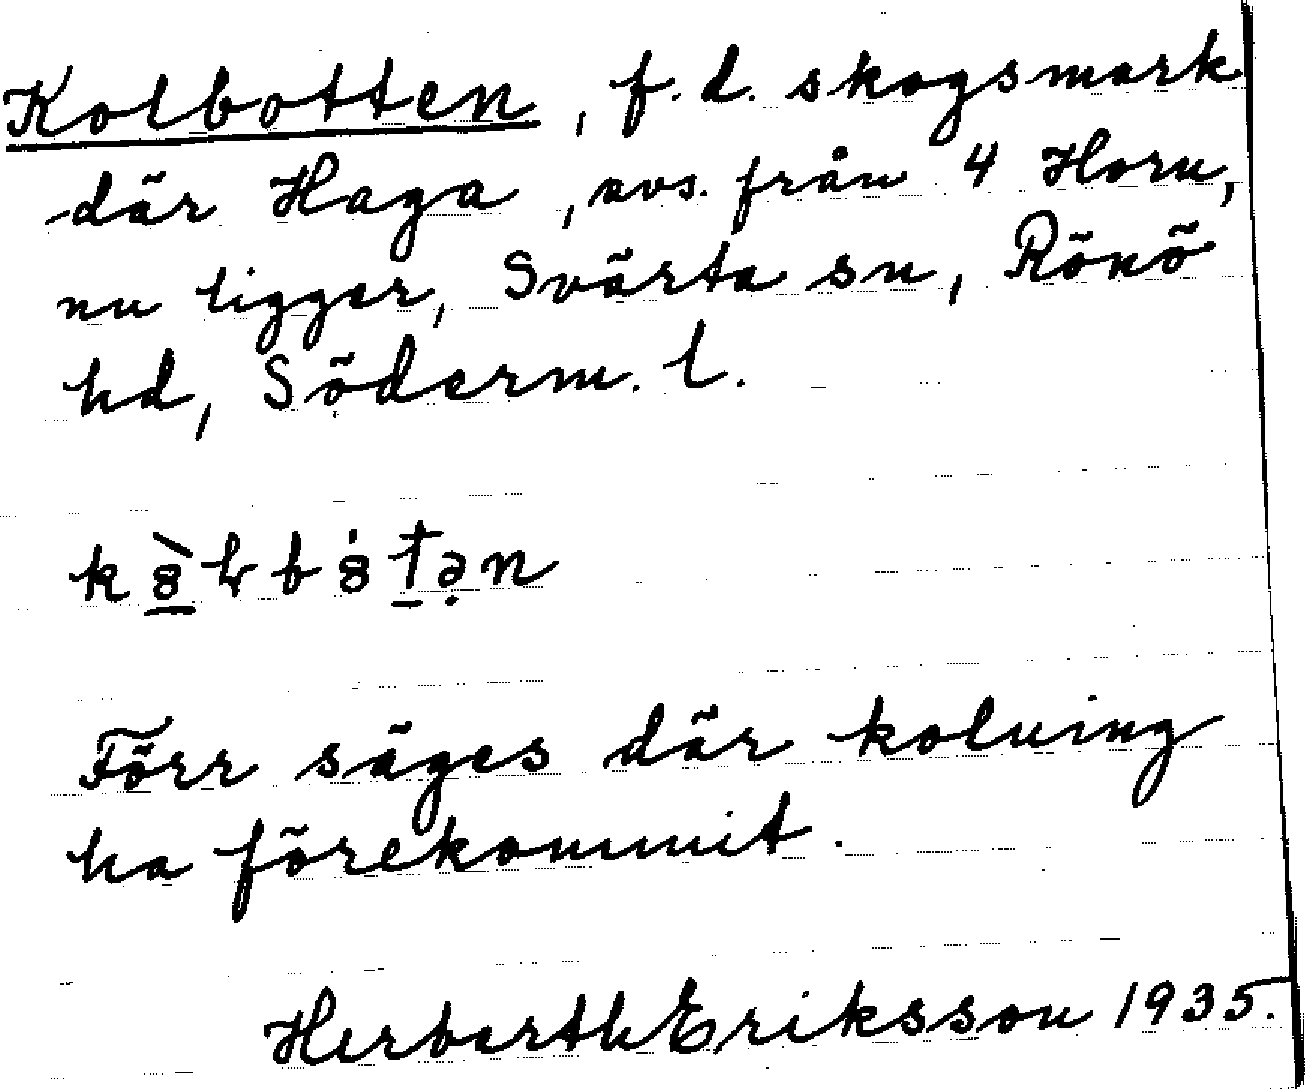 Kolbotten, f.d. skogsmark
där Haga, avs. från 4 Horn,
nu ligger, Svärta sn, Rönö
hd, Söderm. l.
Förr säges där kolning
ha förekommit.
Herbert Eriksson 1935.